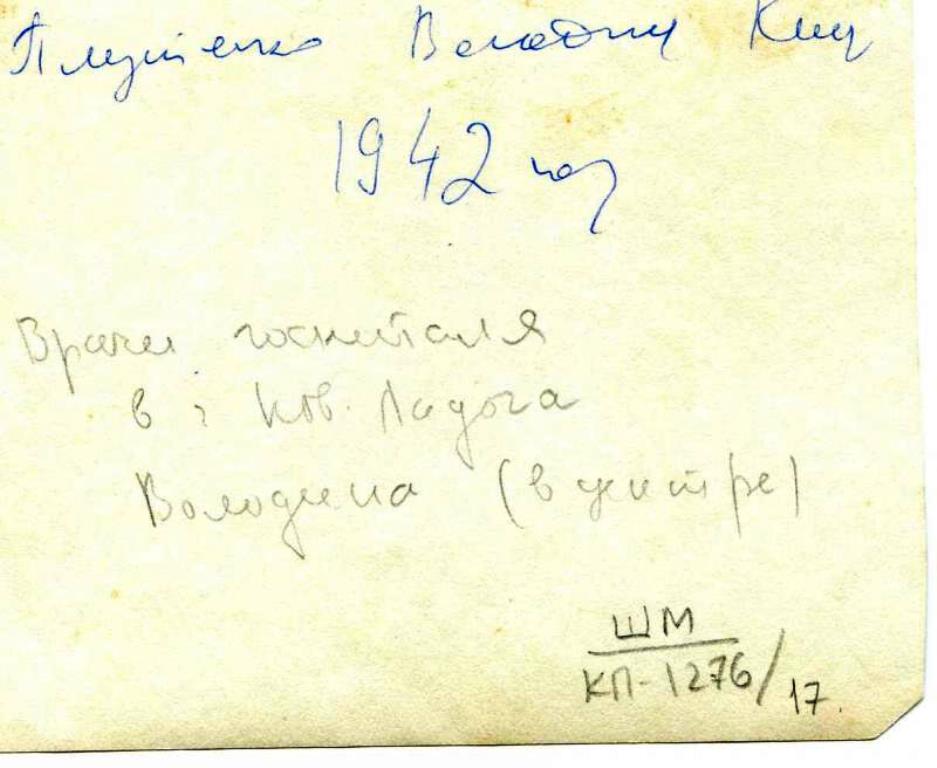 Плутенко Володину
1942 год
Врачи госпиталя
в г Нов. Ладога
Володина (в центре)
ШМ
КП-1276/17.